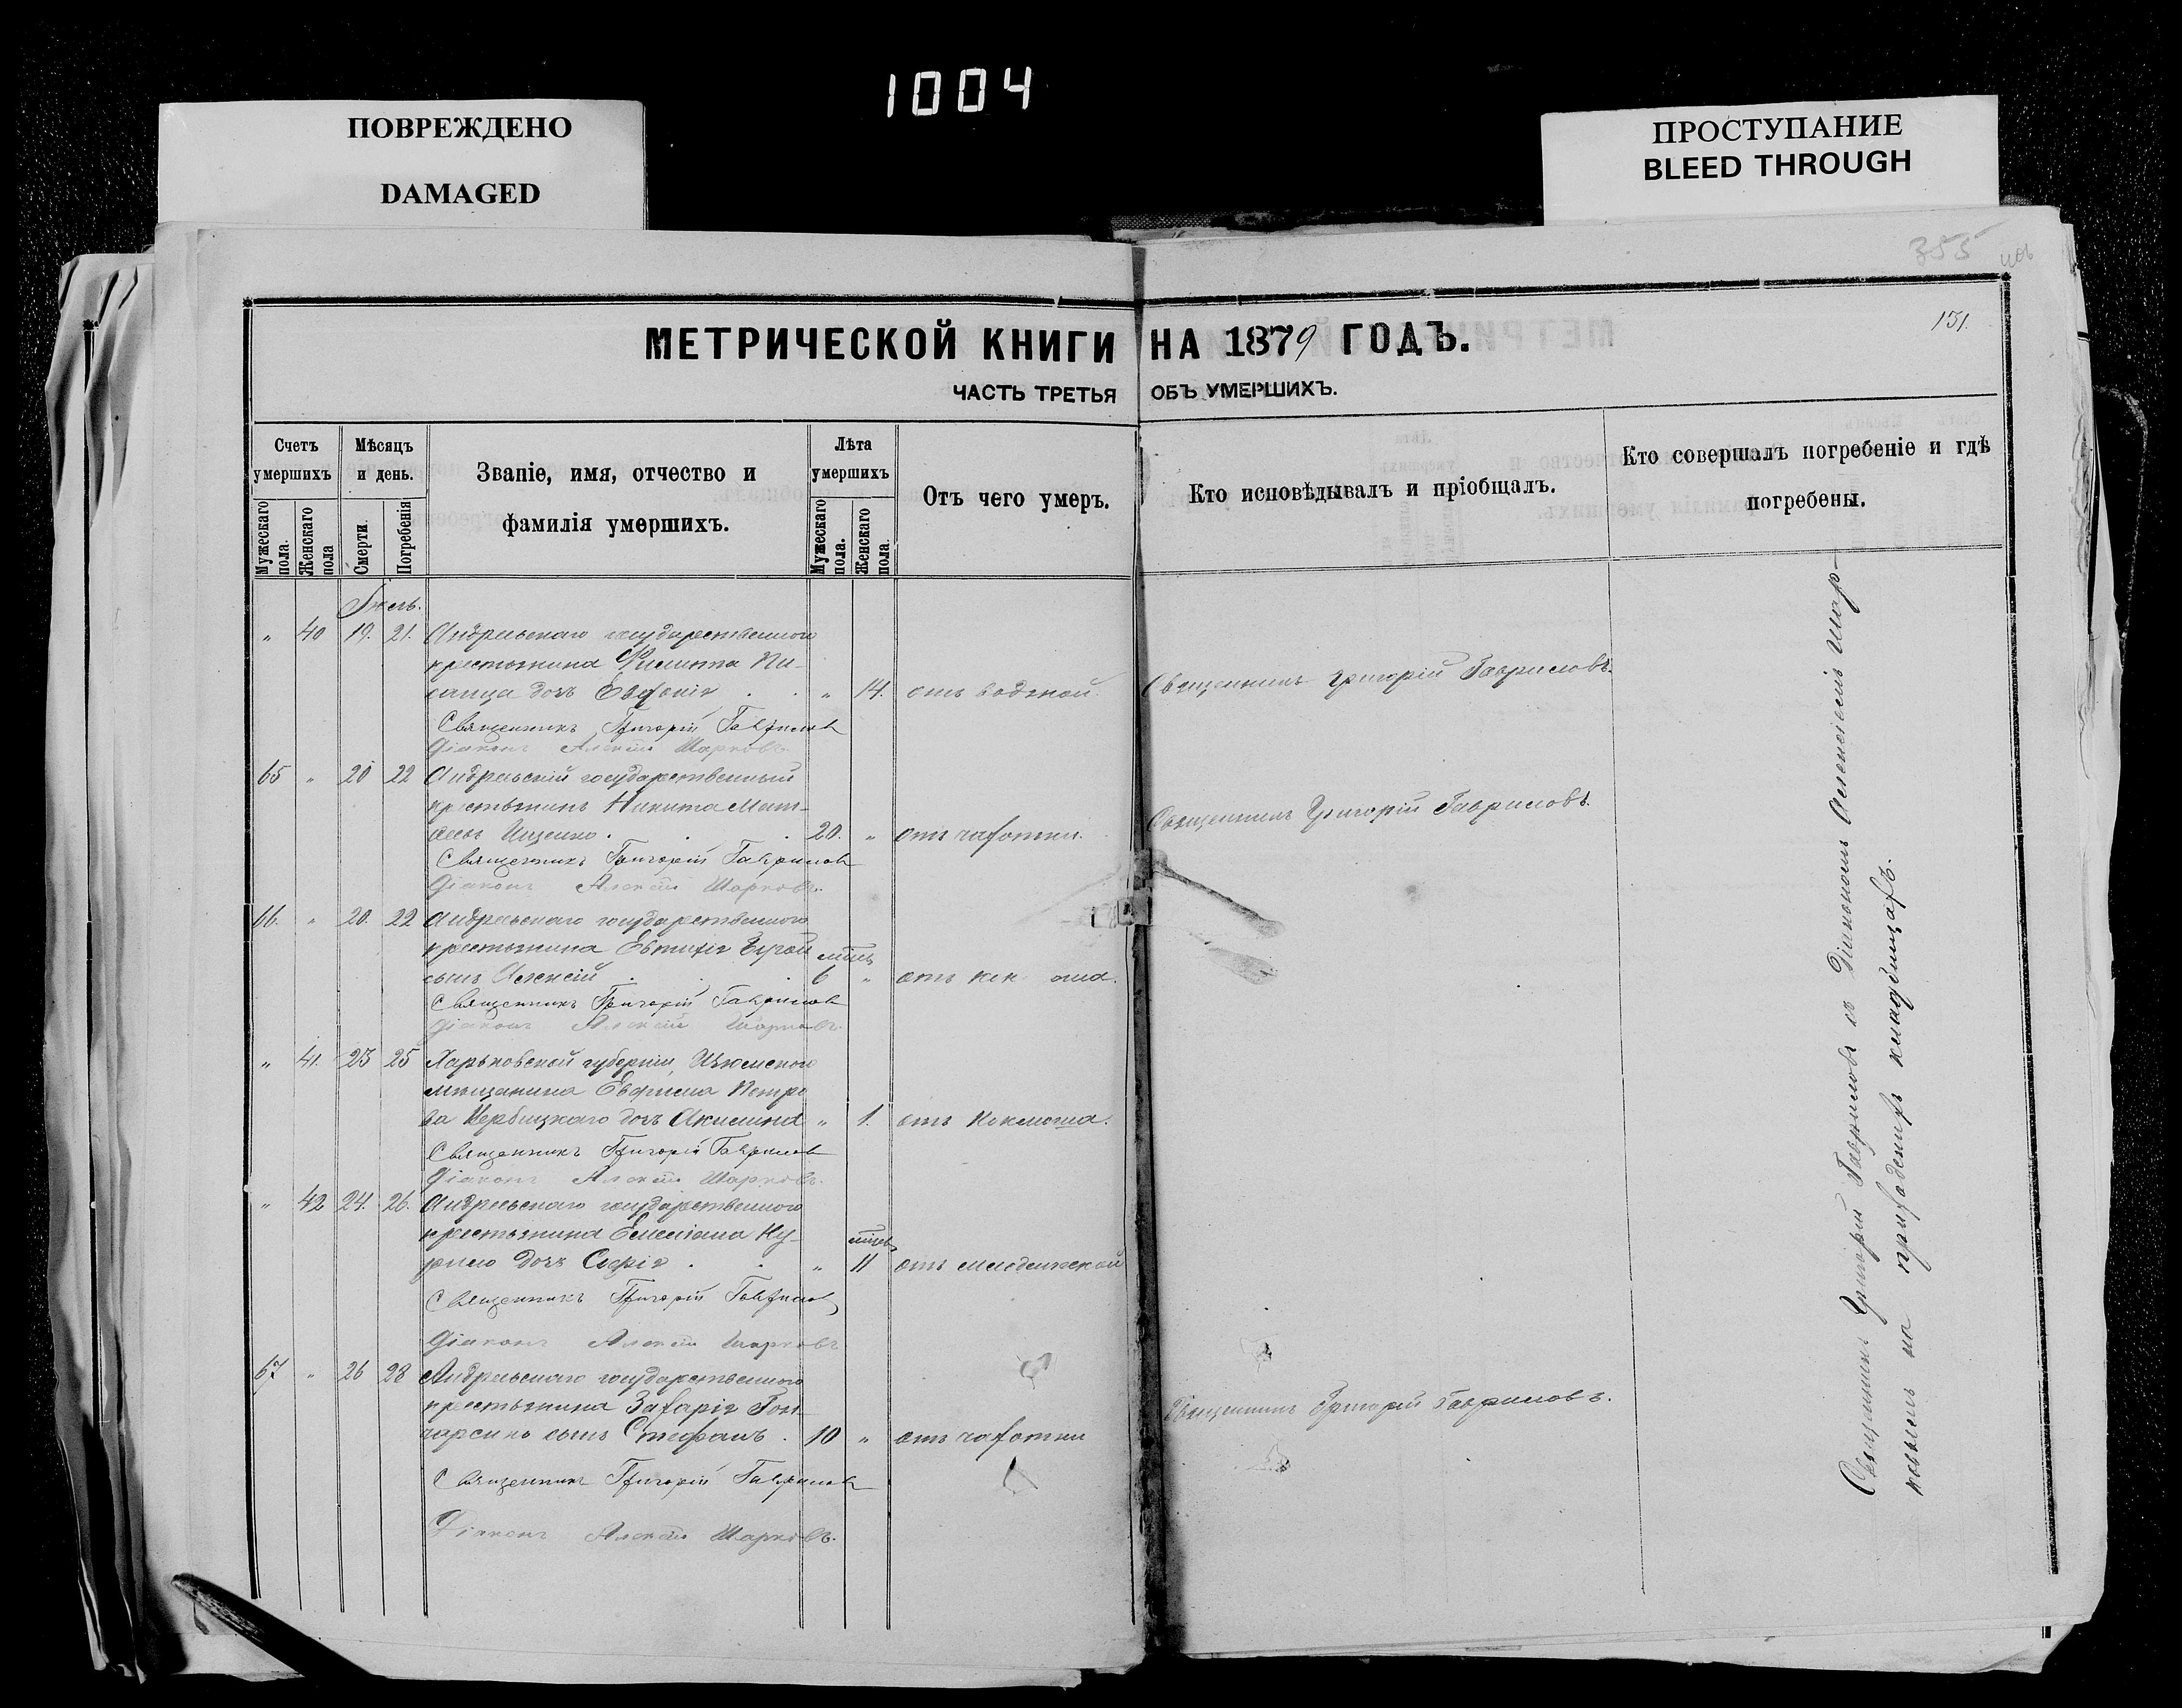 1004
ПОВРЕЖДЕНО
DAMAGED
ПРОСТУПАНИЕ
BLEED THROUGH
355
131.
МЕТРИЧЕСКОЙ КНИГИ НА 1879 ГОДЪ.
ЧАСТЬ ТРЕТЬЯ ОБЪ УМЕРШИХЪ.
Счетъ умершихъ
Мужескаго пола.
Женскаго пола
Мѣсяцъ и день.
Смерти.
Погребенія
Званіе, имя, отчество и
фамилія умершихъ.
Лѣта умершихъ
Мужескаго пола.
Женскаго пола.
Отъ чего умеръ.
Кто исповѣдывалъ и пріобщалъ.
Кто совершалъ погребеніе и гдѣ
погребены.
„ 40 19. 21. Андреевскаго государственнаго
крестьянина Филиппа
дочь Евфимія „ 14. отъ водяной. Священникъ Григорій Гавриловъ.
Священникъ Григорій Гавриловъ
Діаконъ Алексій Шарковъ.
65 „ 20 22 Андреевскій государственный
крестьянинъ Никита Мат-
Ищенко. 20. „ отъ чахотки. Священникъ Григорій Гавриловъ.
Священникъ Григорій Гавриловъ
Діаконъ Алексій Шарковъ.
66. „ 20. 22 Андреевскаго государственнаго
крестьянина Евтихія
сынъ Алексій 6 „ отъ
Священникъ Григорій Гавриловъ
Діаконъ Алексій Шарковъ.
„ 41. 23 25 Харьковской губерніи, Изюмскаго
мѣщанина Евфима Петро
ва Вербицкаго дочь Акилина „ 1. отъ Коклюша.
Священникъ Григорій Гавриловъ
Діаконъ Алексій Шарковъ.
„ 42 24. 26. Андреевскаго государственнаго
крестьянина Емеліана Ку-
дочь Софія „ 11 отъ младенческой
Священникъ Григорій Гавриловъ
Діаконъ Алексій Шарковъ
67 „ 26 28 Андреевскаго государственнаго
крестьянина Захарія Гон-
сынъ Стефанъ. 10 „ отъ чахотки Священникъ Григорій Гавриловъ.
Священникъ Григорій Гавриловъ
Діаконъ Алексій Шарковъ.
Священникъ Григорій Гавриловъ съ Діакономъ Алексіемъ Шар-
ковымъ на приходскихъ кладбищахъ.